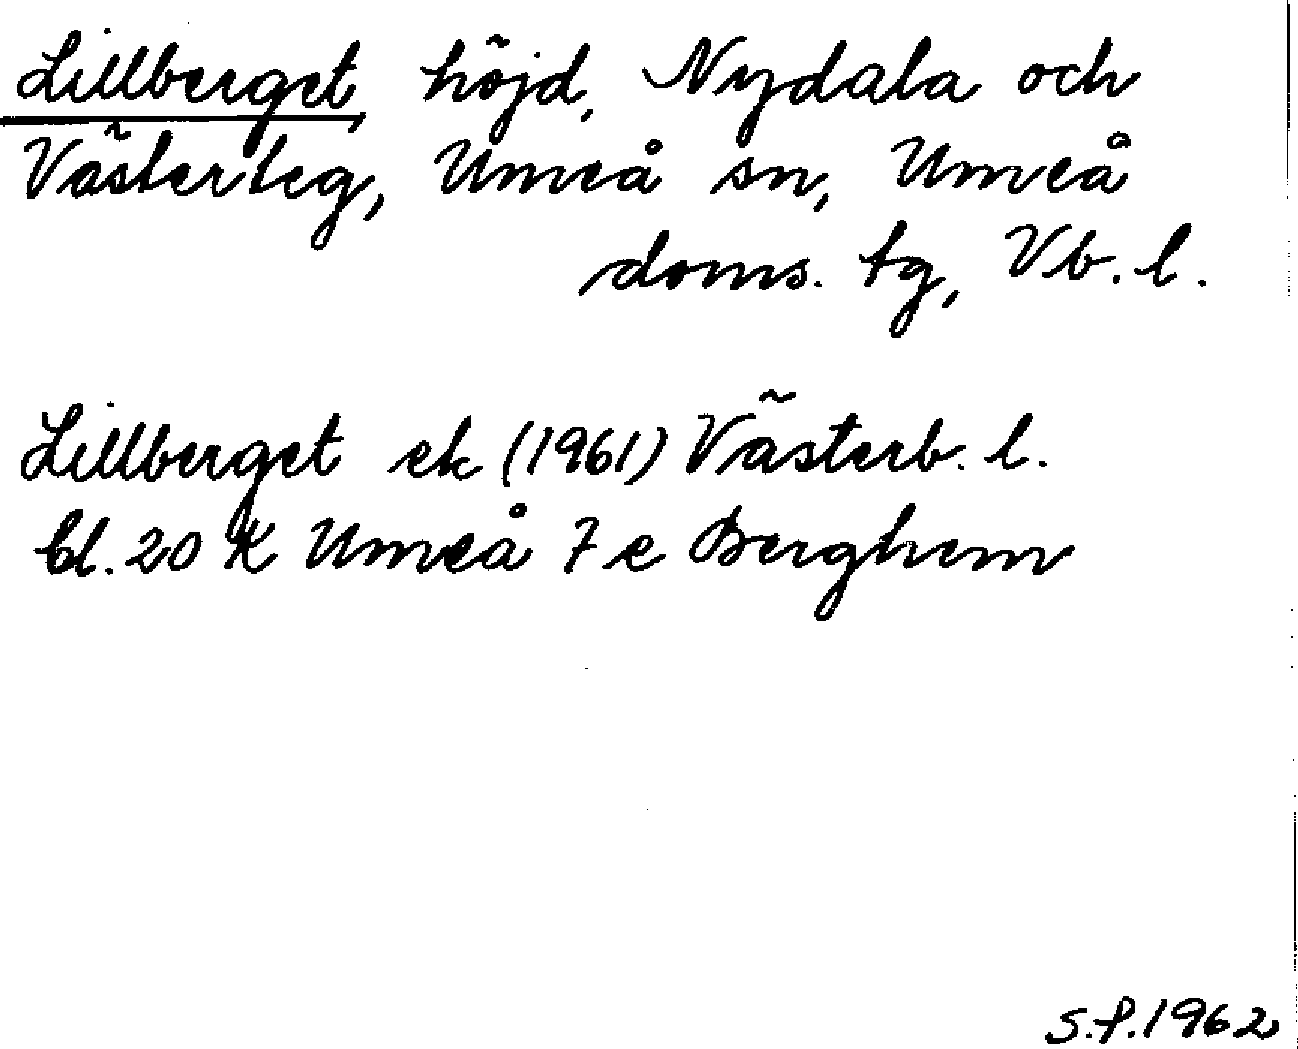 Lillberget, höjd, Nydala och
Västerteg, Umeå sn, Umeå
doms. tg, Vb. l.
Lillberget ek (1961) Västerb. l.
bl. 20 K Umeå 7 e Berghem
S.P. 1962